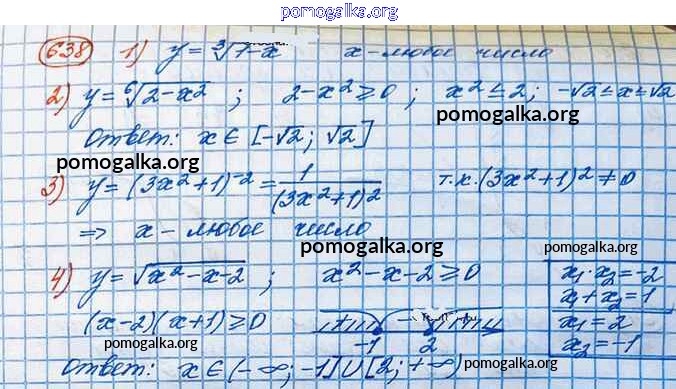 pomogalka.org
638 1) y = ∛(1-x) x - любое число
2) y = ⁶√(2-x²) ; 2-x² ≥ 0 ; x² ≤ 2 ; -√2 ≤ x ≤ √2
pomogalka.org
Ответ: x ∈ [-√2; √2]
pomogalka.org
3) y = (3x²+1)⁻² = 1/(3x²+1)² т.к. (3x²+1)² ≠ 0
⇒ x - любое число
pomogalka.org pomogalka.org
4) y = √(x²-x-2) ; x²-x-2 ≥ 0
x₁·x₂ = -2
x₁+x₂ = 1
x₁ = 2
x₂ = -1
(x-2)(x+1) ≥ 0 + - + -1 2
pomogalka.org pomogalka.org
Ответ: x ∈ (-∞; -1] ∪ [2; +∞)